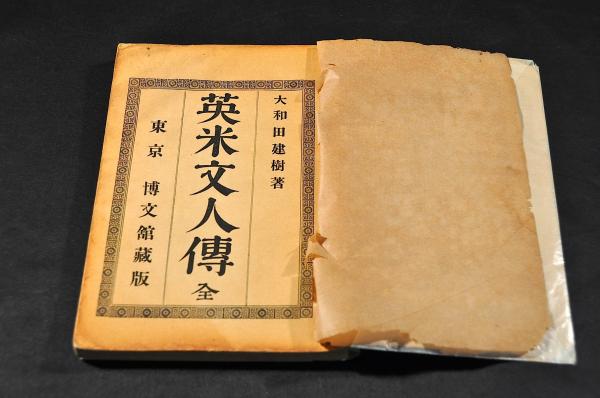 大和田建樹著
英米文人傳 全
東京 博文館藏版